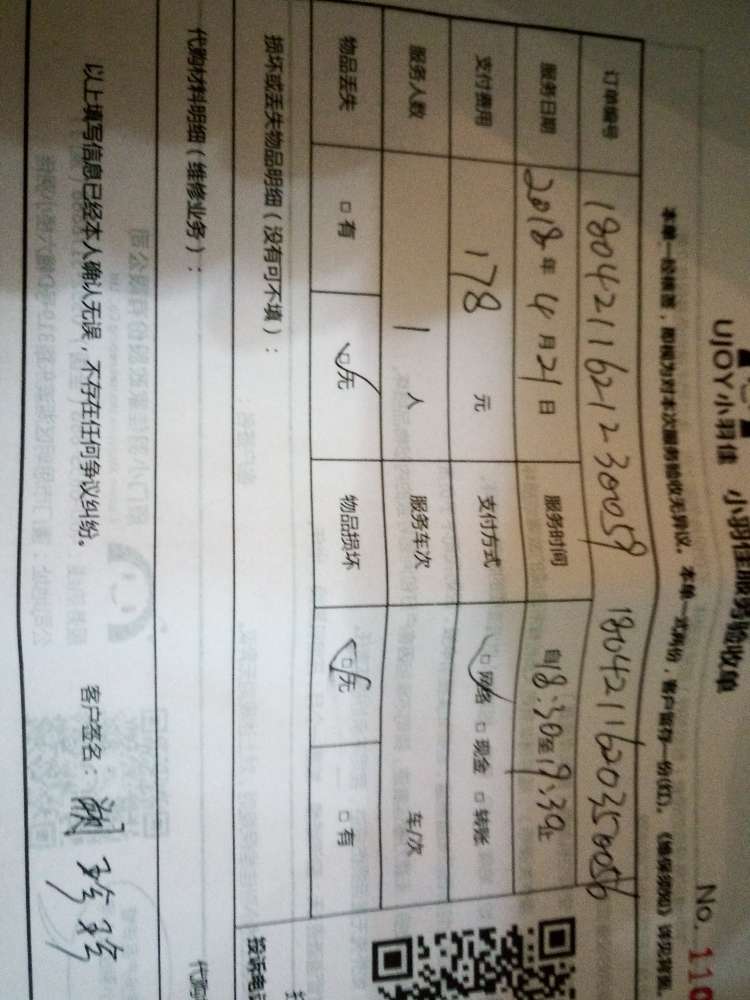 UJOY小羽佳 小羽佳服务验收单
No. 110
本单一经签署，即视为对本次服务验收无异议。本单一式两份，客户留存一份(红)。《维保须知》详见背面。
订单编号 180421162123 00059 180421162035 0056
服务日期 2018年4月21日 服务时间 自18:30至19:30止
支付费用 178 元 支付方式 □网络 □现金 □转账
服务人数 1 人 服务车次 车/次
物品丢失 □有 □无 物品损坏 □无 □有
损坏或丢失物品明细（没有可不填）：
投诉电
代购材料明细（维修业务）：
代购
以上填写信息已经本人确认无误，不存在任何争议纠纷。 客户签名：